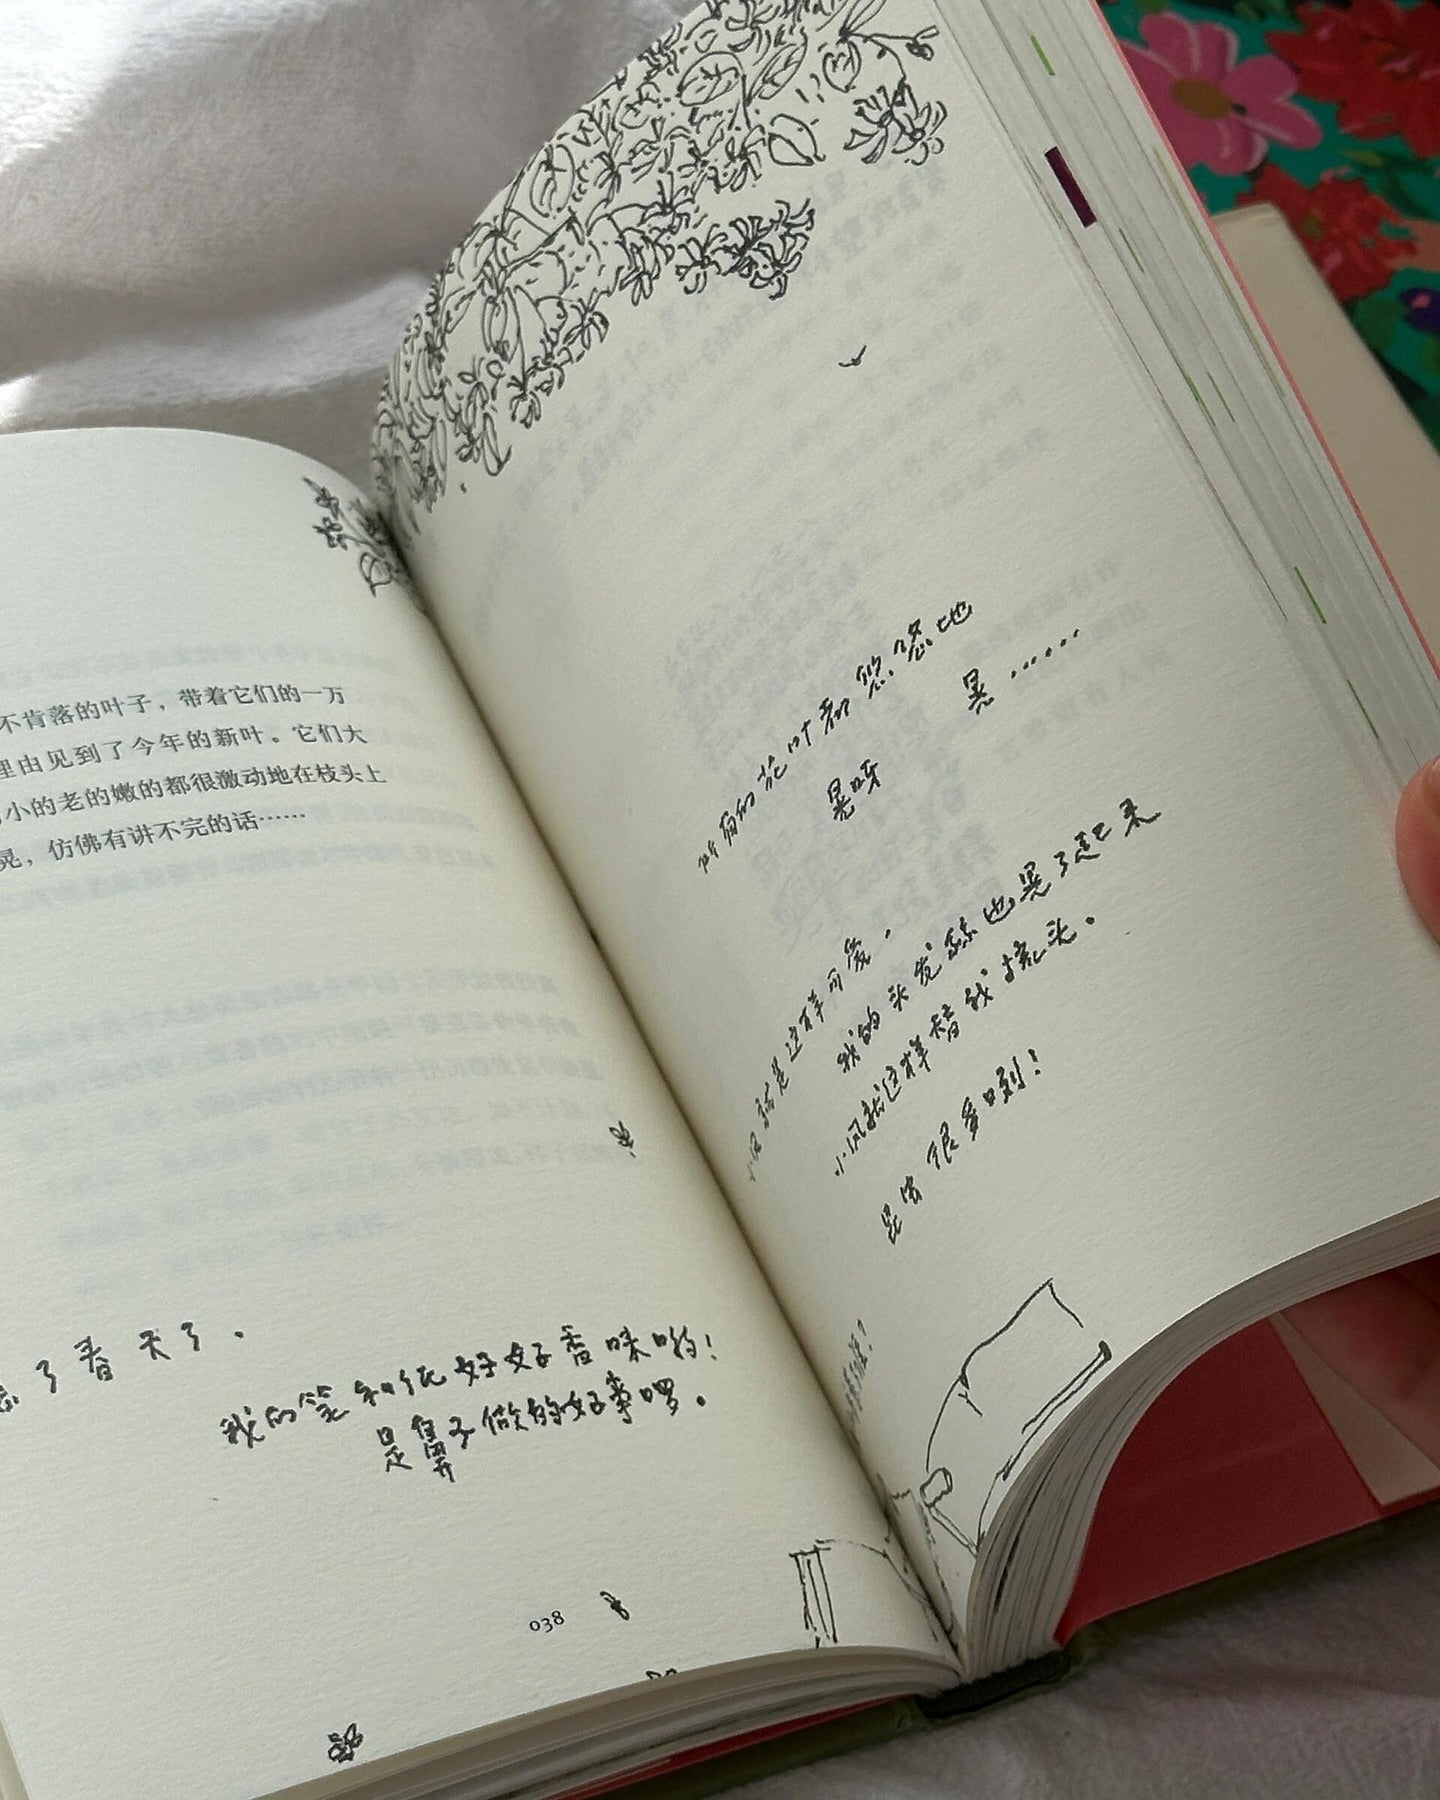 不肯落的叶子，带着它们的一万
理由见到了今年的新叶。它们大
小的老的嫩的都很激动地在枝头上
晃，仿佛有讲不完的话……
了春天了，
我的笔和纸好好香味哟！
是鼻子做的好事啰。
038
所有的花叶都悠悠地
晃呀
晃……
就是这样可爱，
我的头发丝也晃了起来
小风就这样替我挠头。
是出很多时刻！